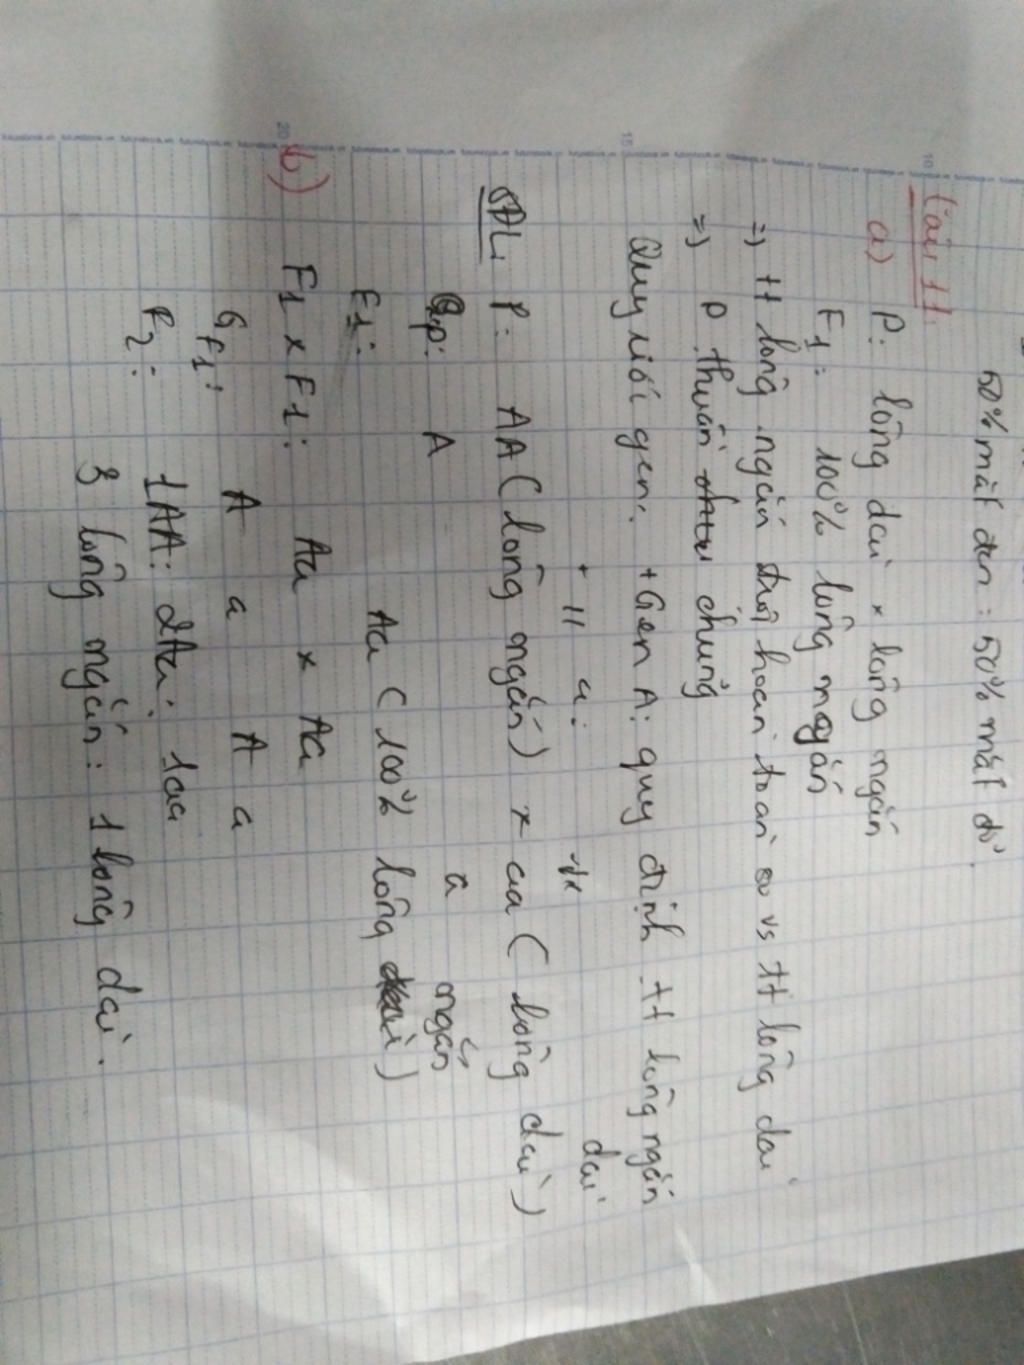 50% mắt đen : 50% mắt đỏ.
10
Bài 11.
a) P: lông dài × lông ngắn
F1: 100% lông ngắn
=) tt lông ngắn trội hoàn toàn so vs tt lông dài
=) P thuần chủng
15
Quy ước gen: + Gen A: quy định tt lông ngắn
+ 11 a: dài
SĐL: P: AA (lông ngắn) × aa (lông dài)
Gp: A a
ngắn
F1: Aa (100% lông)
20
b) F1 × F1: Aa × Aa
GF1: A a A a
F2: 1AA: 2Aa: 1aa
3 lông ngắn : 1 lông dài.